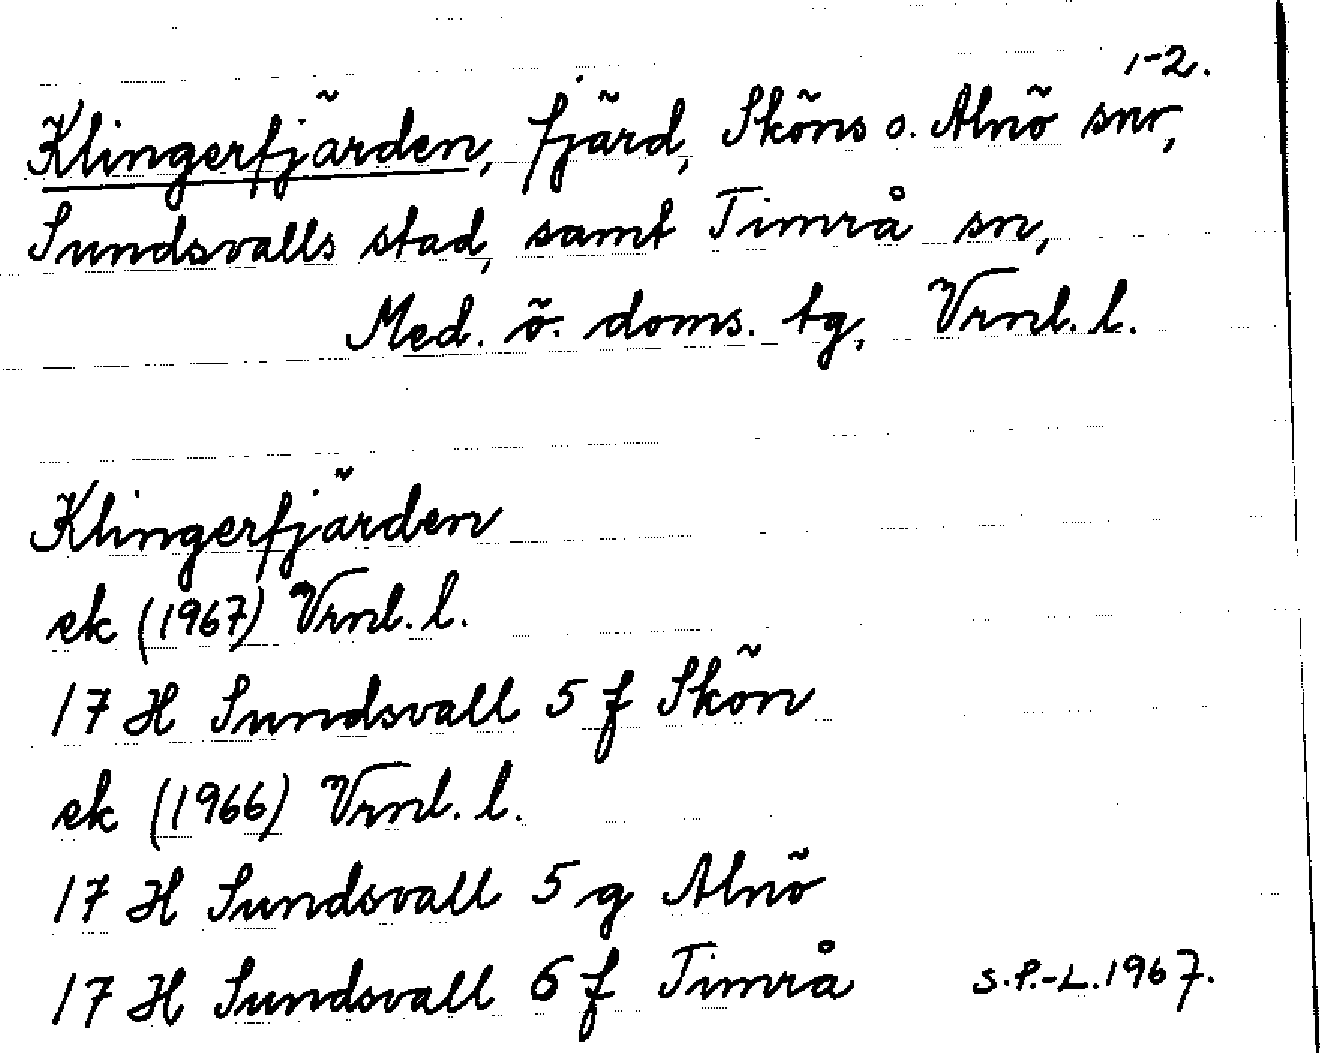 1-2.
Klingerfjärden, fjärd, Sköns o. Alnö snr,
Sundsvalls stad, samt Timrå sn,
Med. ö. doms. tg, Vrnl. l.
Klingerfjärden
ek (1967) Vrnl. l.
17 H Sundsvall 5 f Skön
ek (1966) Vrnl. l.
17 H Sundsvall 5 g Alnö
17 H Sundsvall 6 f Timrå S.P.-L. 1967.